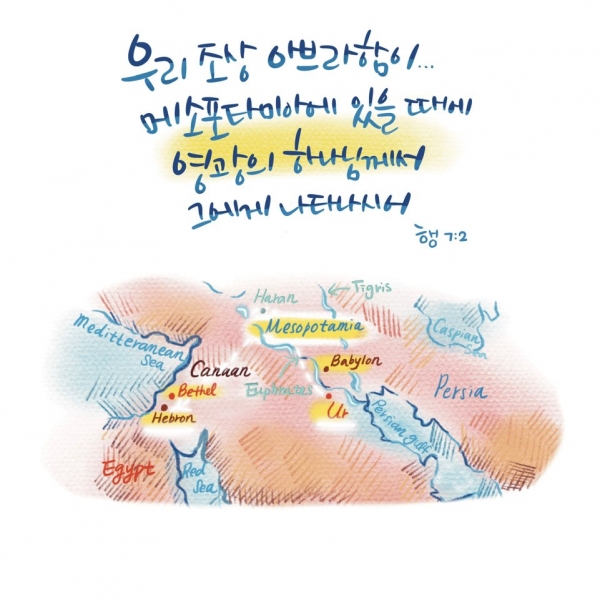 우리 조상 아브라함이...
메소포타미아에 있을 때에
영광의 하나님께서
그에게 나타나시어
행 7:2
Haran
Tigris
Mesopotamia
Mediterranean
Sea
Caspian
Sea
Canaan
Babylon
Bethel
Euphrates
Persia
Hebron
Ur
Persian gulf
Egypt
Red
Sea